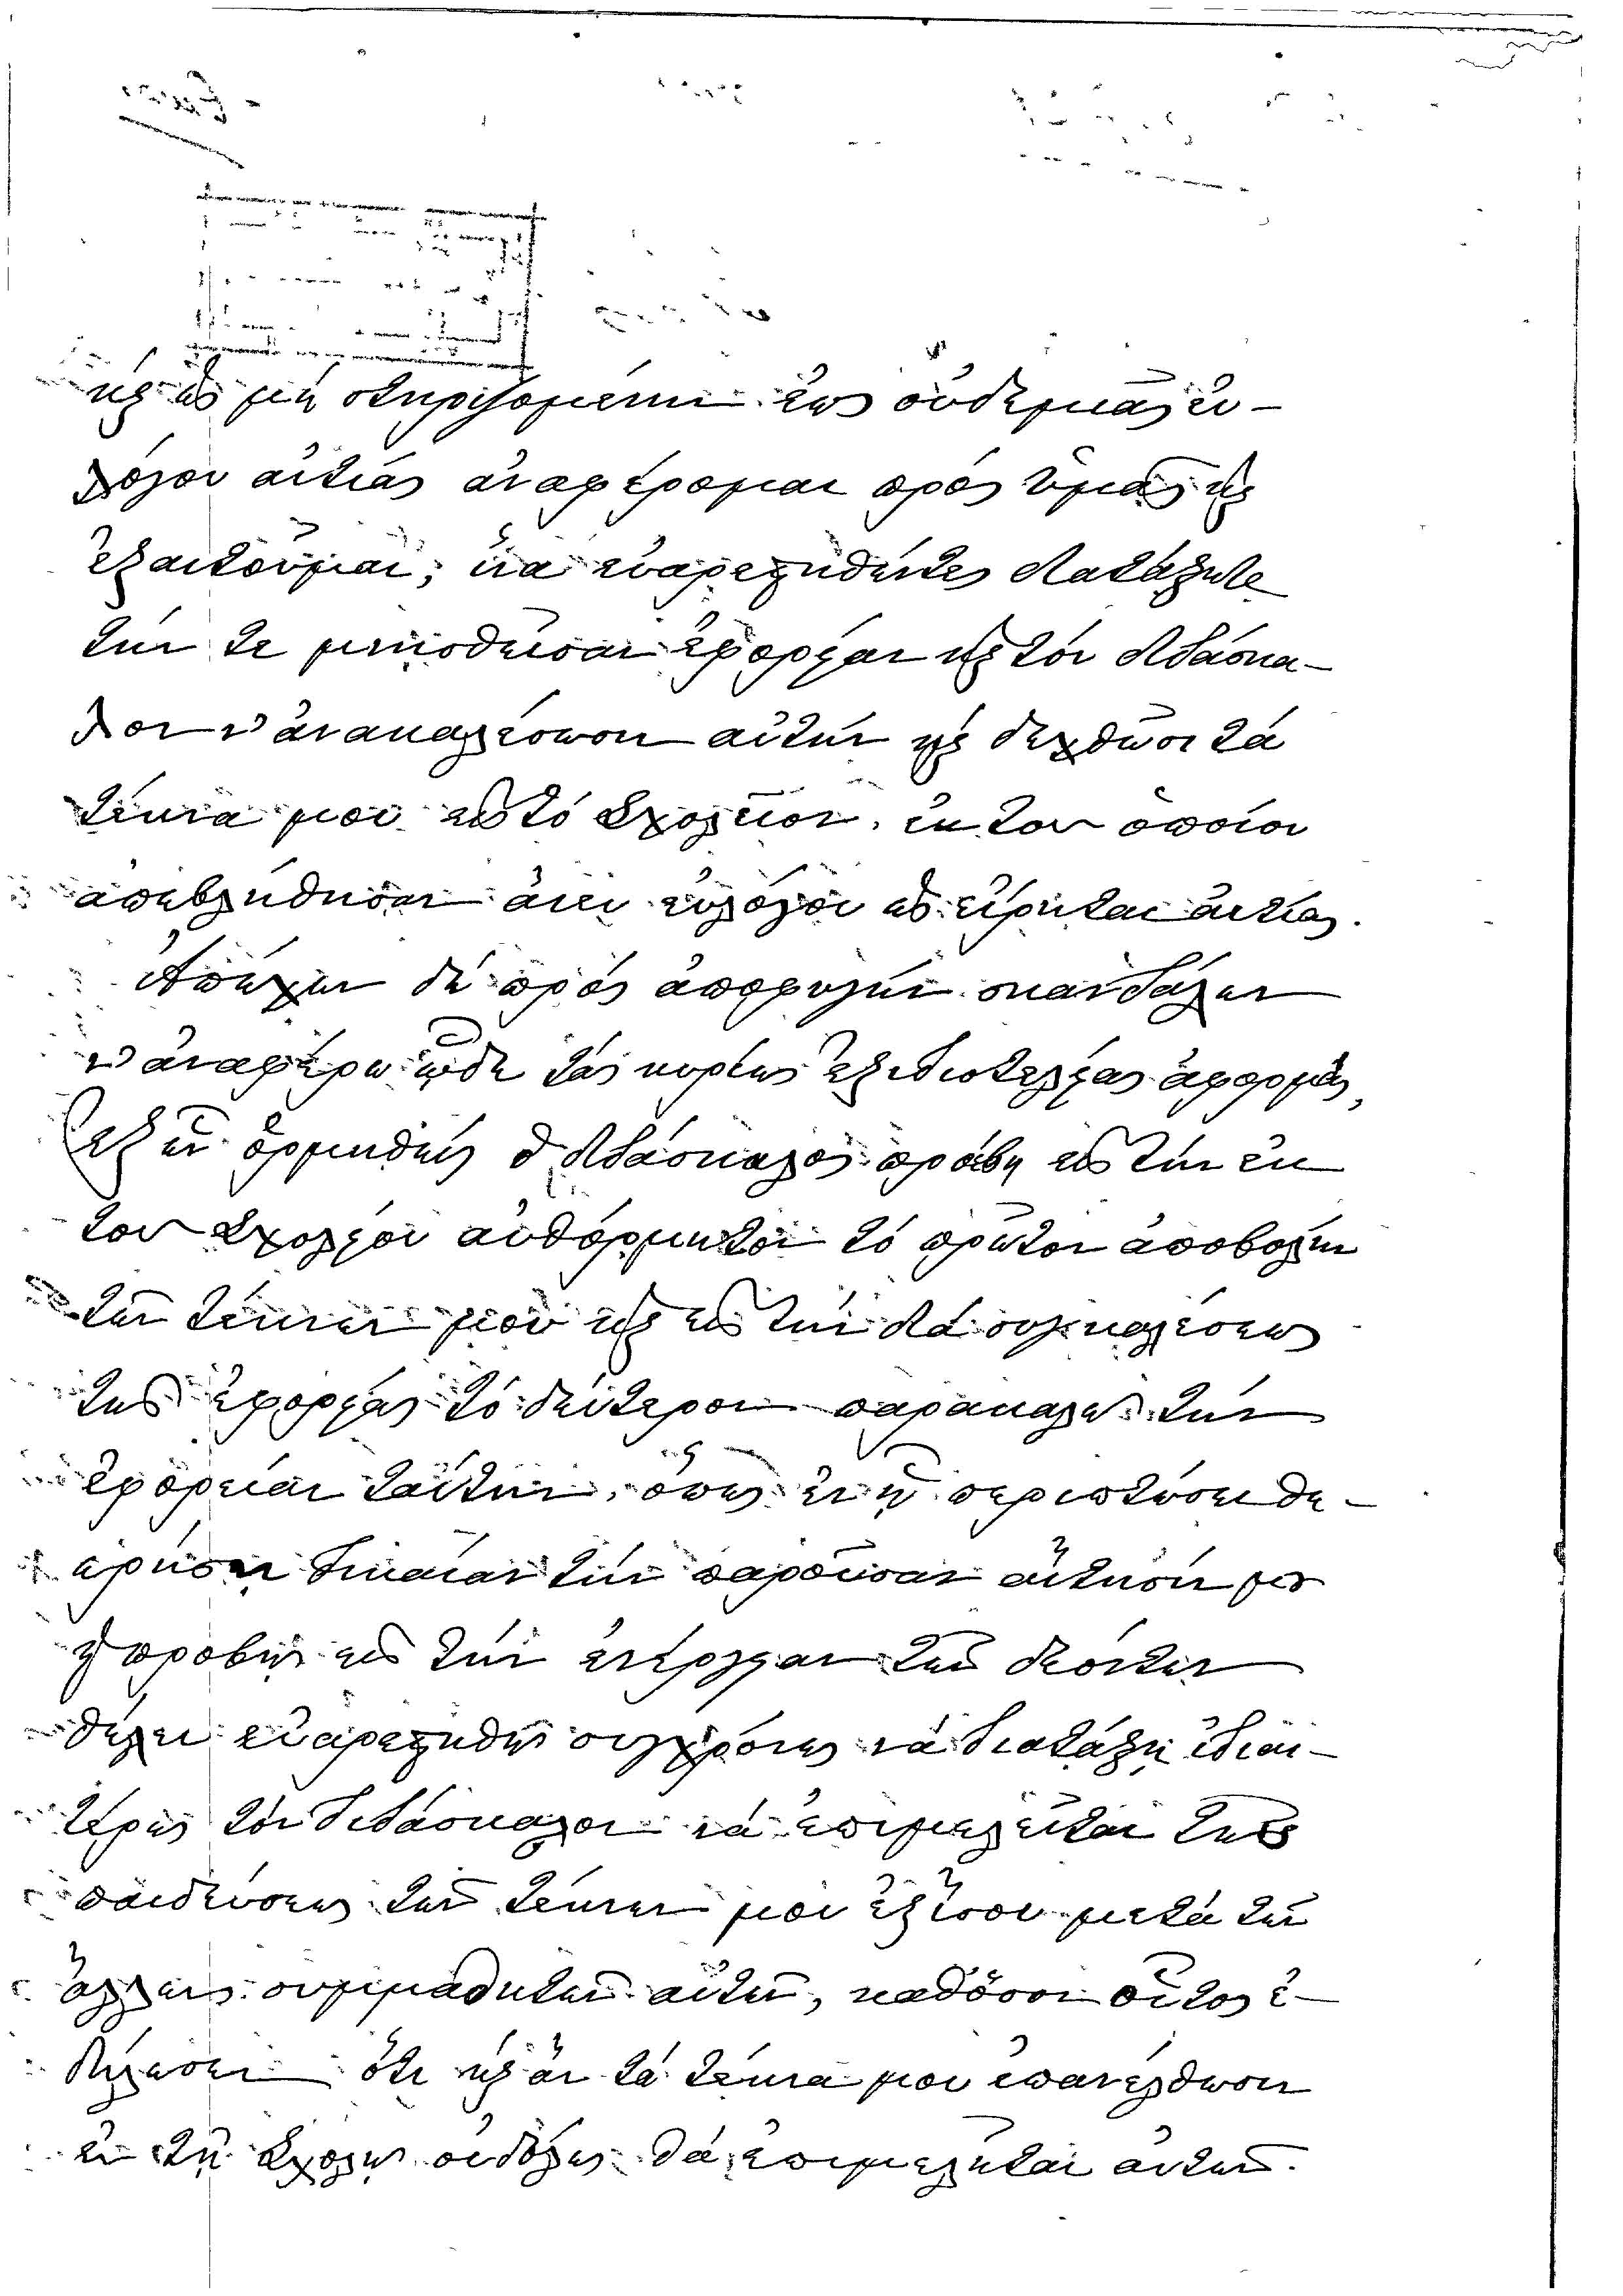 καὶ ὡς μὴ στηριζομένην ἐπ' οὐδεμιᾶς εὐ-
λόγου αἰτίας ἀναφέρομαι πρὸς ὑμᾶς καὶ
ἐξαιτοῦμαι, ἵνα εὐαρεστηθέντες διατάξητε
τήν τε μνησθεῖσαν ἐφορείαν καὶ τὸν διδάσκα-
λον ν' ἀνακαλέσωσιν αὐτὴν καὶ δεχθῶσι τὰ
τέκνα μου εἰς τὸ Σχολεῖον, ἐκ τοῦ ὁποίου
ἀπεβλήθησαν ἄνευ εὐλόγου ὡς εἴρηται αἰτίας.
Ἀπέχων δὲ πρὸς ἀποφυγὴν σκανδάλων
ν' ἀναφέρω ὧδε τὰς κυρίως ἐξ ἰδιοτελείας ἀφορμὰς,
ἐξ ὧν ὁρμηθεὶς ὁ διδάσκαλος προέβη εἰς τὴν ἐκ
τοῦ Σχολείου αὐθόρμητον τὸ πρῶτον ἀποβολὴν
τῶν τέκνων μου καὶ εἰς τὴν διὰ συγκαλέσεως
τῆς ἐφορείας τὸ δεύτερον παρακαλῶ τὴν
ἐφορείαν ταύτην, ὅπως ἐν ᾗ περιπτώσει θε-
ωρήσῃ δικαίαν τὴν παροῦσαν αἴτησίν μου
καὶ προβῇ εἰς τὴν ἐνέργειαν τῶν δεόντων
θέλει εὐαρεστηθῆ συγχρόνως νὰ διατάξῃ ἰδιαι-
τέρως τὸν διδάσκαλον νὰ ἐπιμελῆται τῆς
παιδεύσεως τῶν τέκνων μου ἐξ ἴσου μετὰ τῶν
ἄλλων συμμαθητῶν αὐτῶν, καθόσον οὗτος ἐ-
δήλωσεν ὅτι καὶ ἂν τὰ τέκνα μου ἐπανέλθωσιν
ἐν τῇ Σχολῇ οὐδόλως θὰ ἐπιμελῆται αὐτῶν.